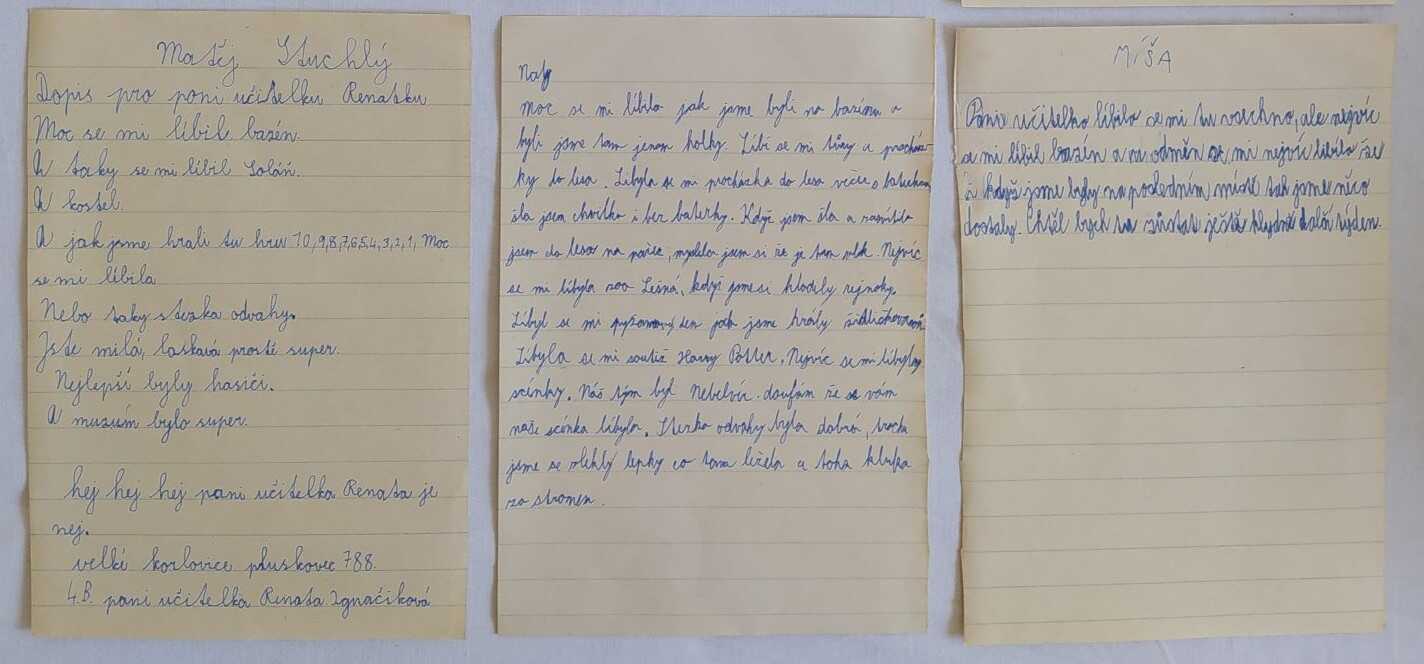 Matěj Stuchlý
Dopis pro poni učitelku Renatku
Moc se mi líbil bazén.
A taky se mi líbil Soláň.
A kostel.
A jak jsme hrali tu hru 10,9,8,7,6,5,4,3,2,1, Moc
se mi líbila
Nebo taky stezka odvahy.
Jste milá, laskavá prostě super.
Nejlepší byly hasiči.
A muzúm bylo super.
hej hej hej pani učitelka Renata je
nej.
velké korlovice pluskovec 788.
4.B. pani učitelka Renata Ignačiková
Naty
Moc se mi líbilo jak jsme byli na bazénu a
byli jsme tam jenom holky. Líbí se mi túry a procház-
ky do lesa. Líbyla se mi procházka do lesa večer s baterkam
šla jsem chvilku i bez baterky. Když jsem šla a rasvítila
jsem do lesa na pařez, myslela jsem si že je tam vlk. Nejvíc
se mi líbyla zoo Lešná, když jsme si hladily rejnoky.
Líbyl se mi pyžamový den jak jsme hrály
Líbyla se mi soutěž Harry Potter. Nejvíc se mi líbyly
scénky. Náš tým byl Nebelvír. doufám že se vám
naše scénka líbyla. Stezka odvahy byla dobrá, trochu
jsme se lekly lepky co tam ležela a toho klupa
za stromem.
MÍŠA
Panie učitelko líbilo se mi tu vśechno, ale nejvíc
se mi líbil bazén a na odměn se mi nejvíc líbilo že
i když jsme byly na posledním místě tak jsme něco
dostaly. Chtěl bych tu zůstat ještě klydně další týden.